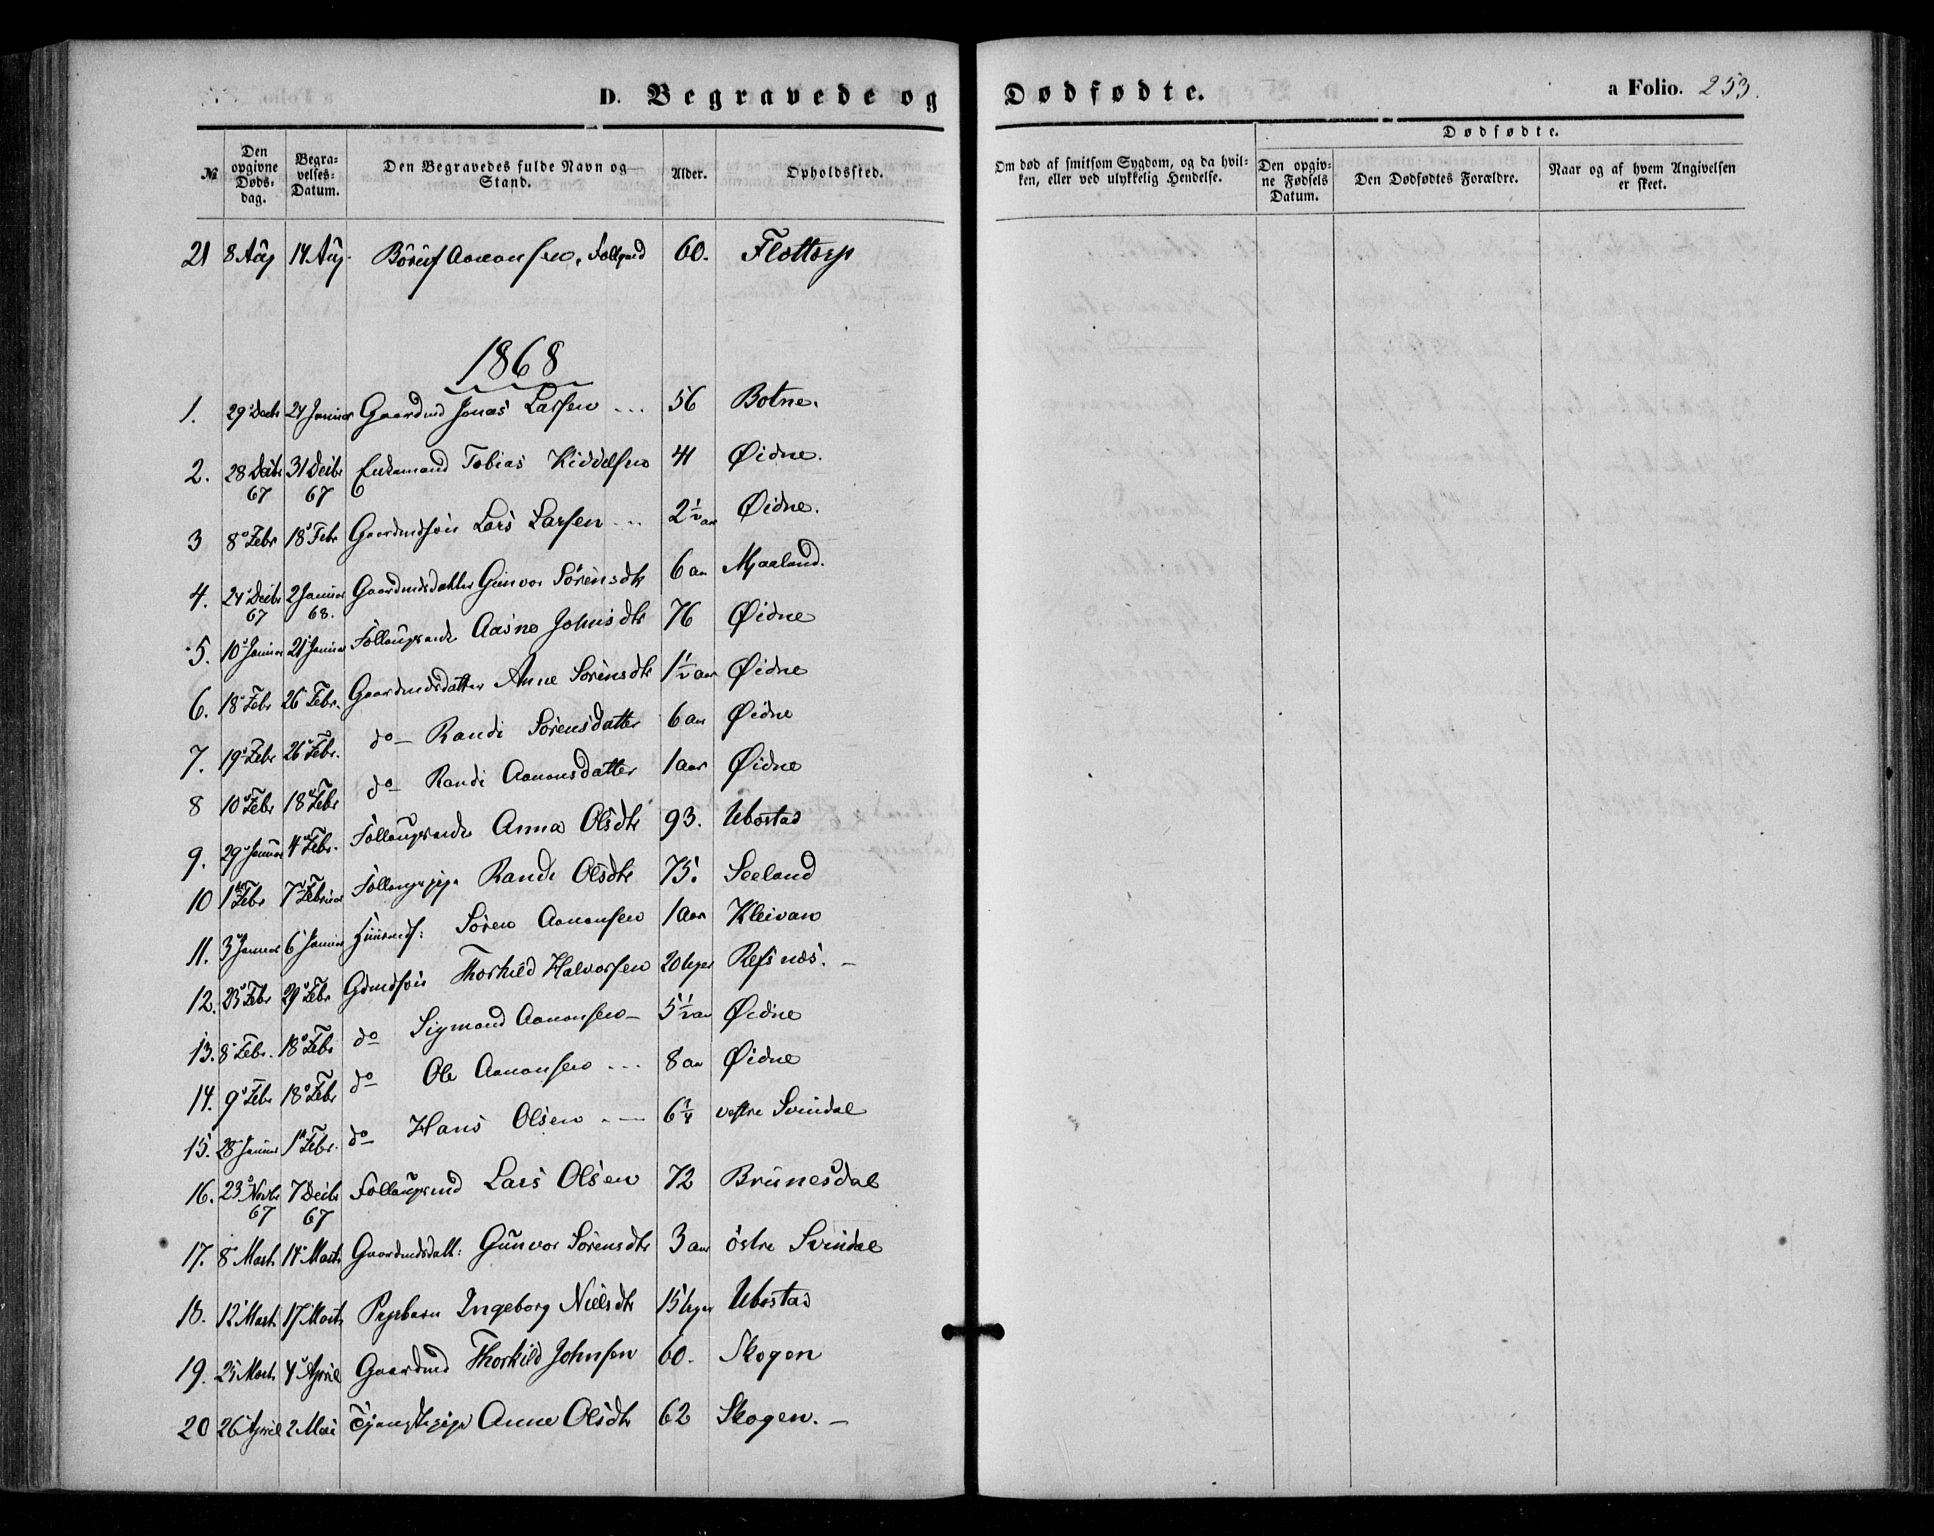 D. Begravede og Dødfødte.
a Folio. 253.
Dødfødte.
№
Den opgivne Døds-dag.
Begra-velses-Datum.
Den Begravedes fulde Navn og Stand.
Alder.
Opholdssted.
Om død af smitsom Sygdom, og da hvil-ken, eller ved ulykkelig Hendelse.
Den opgiv-ne Fødsels Datum.
Den Dødfødtes Forældre.
Naar og af hvem Angivelsen er skeet.
21 8 Aug 14 Aug. Aanonsen, 60. Flottorp
1868
1. 29 Decbr 24 Januar Gaardmd Jonas Larsen ... 56 Botne.
2. 28 Decbr 67 31 Decbr 67 Enkemand Tobias Kiddelsen 41 Øidne.
3 8 Febr 18 Febr Gaardmdsøn Lars Larsen ... 2½ aar Øidne.
4. 24 Decbr 67 2 Januar 68. Gaardmdsdatter Gunvor Sørensdtr 6 aar Mjaaland.
5. 10 Januar 21 Januar Aasne Johnsdtr 76 Øidne
6. 18 Febr 26 Febr. Gaardmdsdatter Anne Sørensdtr 1½ aar Øidne
7. 19 Febr 26 Febr. do Randi Sørensdatter 6 aar Øidne
8 10 Febr 18 Febr do Randi Aanonsdatter 1 aar Øidne
9. 29 Januar 4 Febr. Anna Olsdtr 93. Ubostad
10 1 Febr 7 Februar Randi Olsdtr 75. Seeland
11. 3 Januar 6 Januar Søren Aanonsen 1 aar Kleivan
12. 23 Febr 29 Febr Gdmdsøn Thorkild Halvorsen 20 Uger Refsnæs. –
13. 8 Febr. 18 Febr do Sigmund Aanonsen – 5½ aar Øidne
14. 9 Febr 18 Febr do Ole Aanonsen ... 8 aar Øidne
15. 28 Januar 1 Febr. do Hans Olsen 6¼ vestre Svindal
16. 23 Novbr 67 7 Decbr 67 Lars Olsen 72 Brunesdal
17. 8 Marts 14 Marts Gaardmdsdatt: Gunvor Sørensdtr 3 aar østre Svindal
18. 12 Marts 17 Marts Pigebarn Ingeborg Nielsdtr 15 Uger Ubostad
19. 25 Marts 4 April Gaardmd Thorkild Johnsen 60. Skogen
20 26 April 2 Mai Tjenestepige Anne Olsdtr 62 Skogen. –